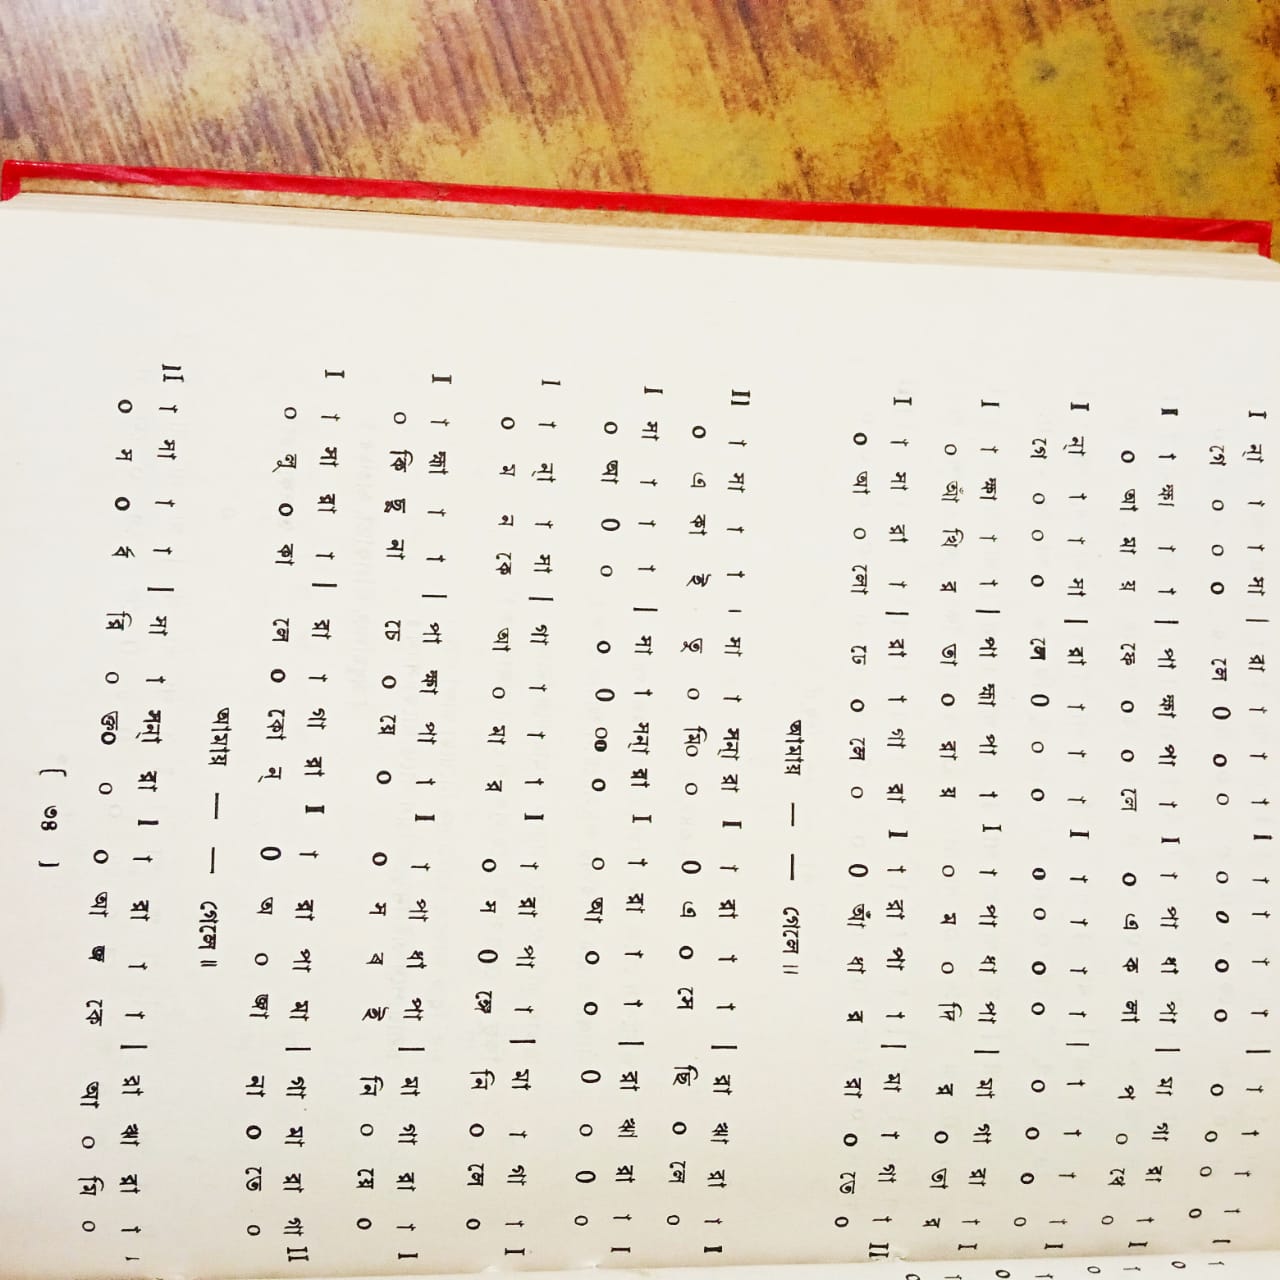 I ন্া † † সা | রা † † † I † † † † | † † † † I
গে ০ ০ ০ লে ০ ০ ০ ০ ০ ০ ০ ০ ০ ০ ০
I † ক্ষা † † | পা ক্ষা পা † I † পা ধা পা | মা গা রা † I
০ আ মা য় ফে ০ ০ লে ০ এ ক লা প ০ থে ০
I ন্া † † সা | রা † † † I † † † † | † † † † I
গে ০ ০ ০ লে ০ ০ ০ ০ ০ ০ ০ ০ ০ ০ ০
I † ক্ষা † † | পা ক্ষা পা † I † পা ধা পা | মা গা রা † I
০ আঁ খি র তা ০ রা য় ০ ম ০ দি র ০ তা র
I † সা রা † | রা † গা রা I † রা পা † | মা † গা † II
০ আ ০ লো ঢে ০ লে ০ ০ আঁ ধা র রা ০ তে ০
আমায় — — গেলে॥
II † সা † † । সা † সন্া রা I † রা † † | রা ঋা রা † I
০ এ কা ই তু ০ মি০ ০ ০ এ ০ সে ছি ০ লে ০
I সা † † † | সা † সন্া রা I † রা † † | রা ঋা রা † I
০ আ ০ ০ ০ ০ ০০ ০ ০ আ ০ ০ ০ ০ ০ ০
I † ন্া † সা | গা † † † I † রা পা † | মা † গা † I
০ ম ন কে আ ০ মা র ০ ম ০ নি ০ লে ০
I † ক্ষা † † | পা ক্ষা পা † I † পা ধা পা | মা গা রা † I
০ কি ছু না চে ০ য়ে ০ ০ স ব ই নি ০ য়ে ০
I † সা রা † | রা † গা রা I † রা পা মা | গা মা রা গা II
০ লু ০ কা লে ০ কো ন্ ০ অ ০ জা না ০ তে ০
আমায় — — গেলে॥
II † সা † † | সা † সন্া রা I † রা † † | রা ঋা রা † ।
০ স ০ র্ব রি ০ ক্ত০ ০ ০ আ জ কে আ ০ মি ০
( ৩৪ )